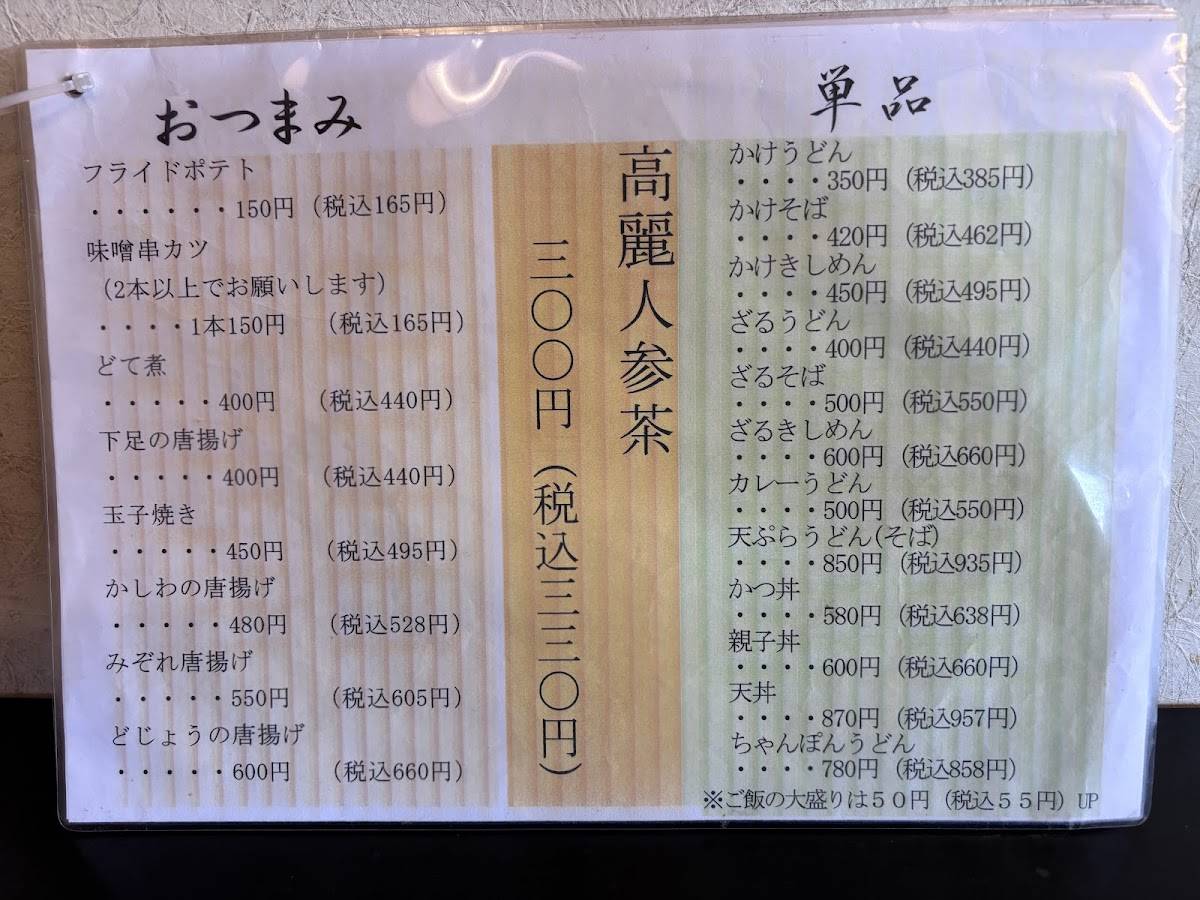 おつまみ
フライドポテト
・・・・・・150円 (税込165円)
味噌串カツ
(2本以上でお願いします)
・・・・1本150円 (税込165円)
どて煮
・・・・・400円 (税込440円)
下足の唐揚げ
・・・・・400円 (税込440円)
玉子焼き
・・・・・450円 (税込495円)
かしわの唐揚げ
・・・・・480円 (税込528円)
みぞれ唐揚げ
・・・・・550円 (税込605円)
どじょうの唐揚げ
・・・・・600円 (税込660円)
高麗人参茶
三〇〇円(税込三三〇円)
単品
かけうどん
・・・・350円 (税込385円)
かけそば
・・・・420円 (税込462円)
かけきしめん
・・・・450円 (税込495円)
ざるうどん
・・・・400円 (税込440円)
ざるそば
・・・・500円 (税込550円)
ざるきしめん
・・・・600円 (税込660円)
カレーうどん
・・・・500円 (税込550円)
天ぷらうどん(そば)
・・・・850円 (税込935円)
かつ丼
・・・・580円 (税込638円)
親子丼
・・・・600円 (税込660円)
天丼
・・・・870円 (税込957円)
ちゃんぽんうどん
・・・・780円 (税込858円)
※ご飯の大盛りは50円(税込55円)UP